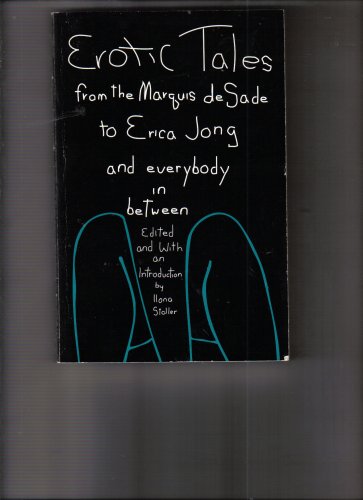 Erotic Tales
from the Marquis deSade
to Erica Jong
and everybody
in
between
Edited
and With
an
Introduction
by
Ilona
Staller